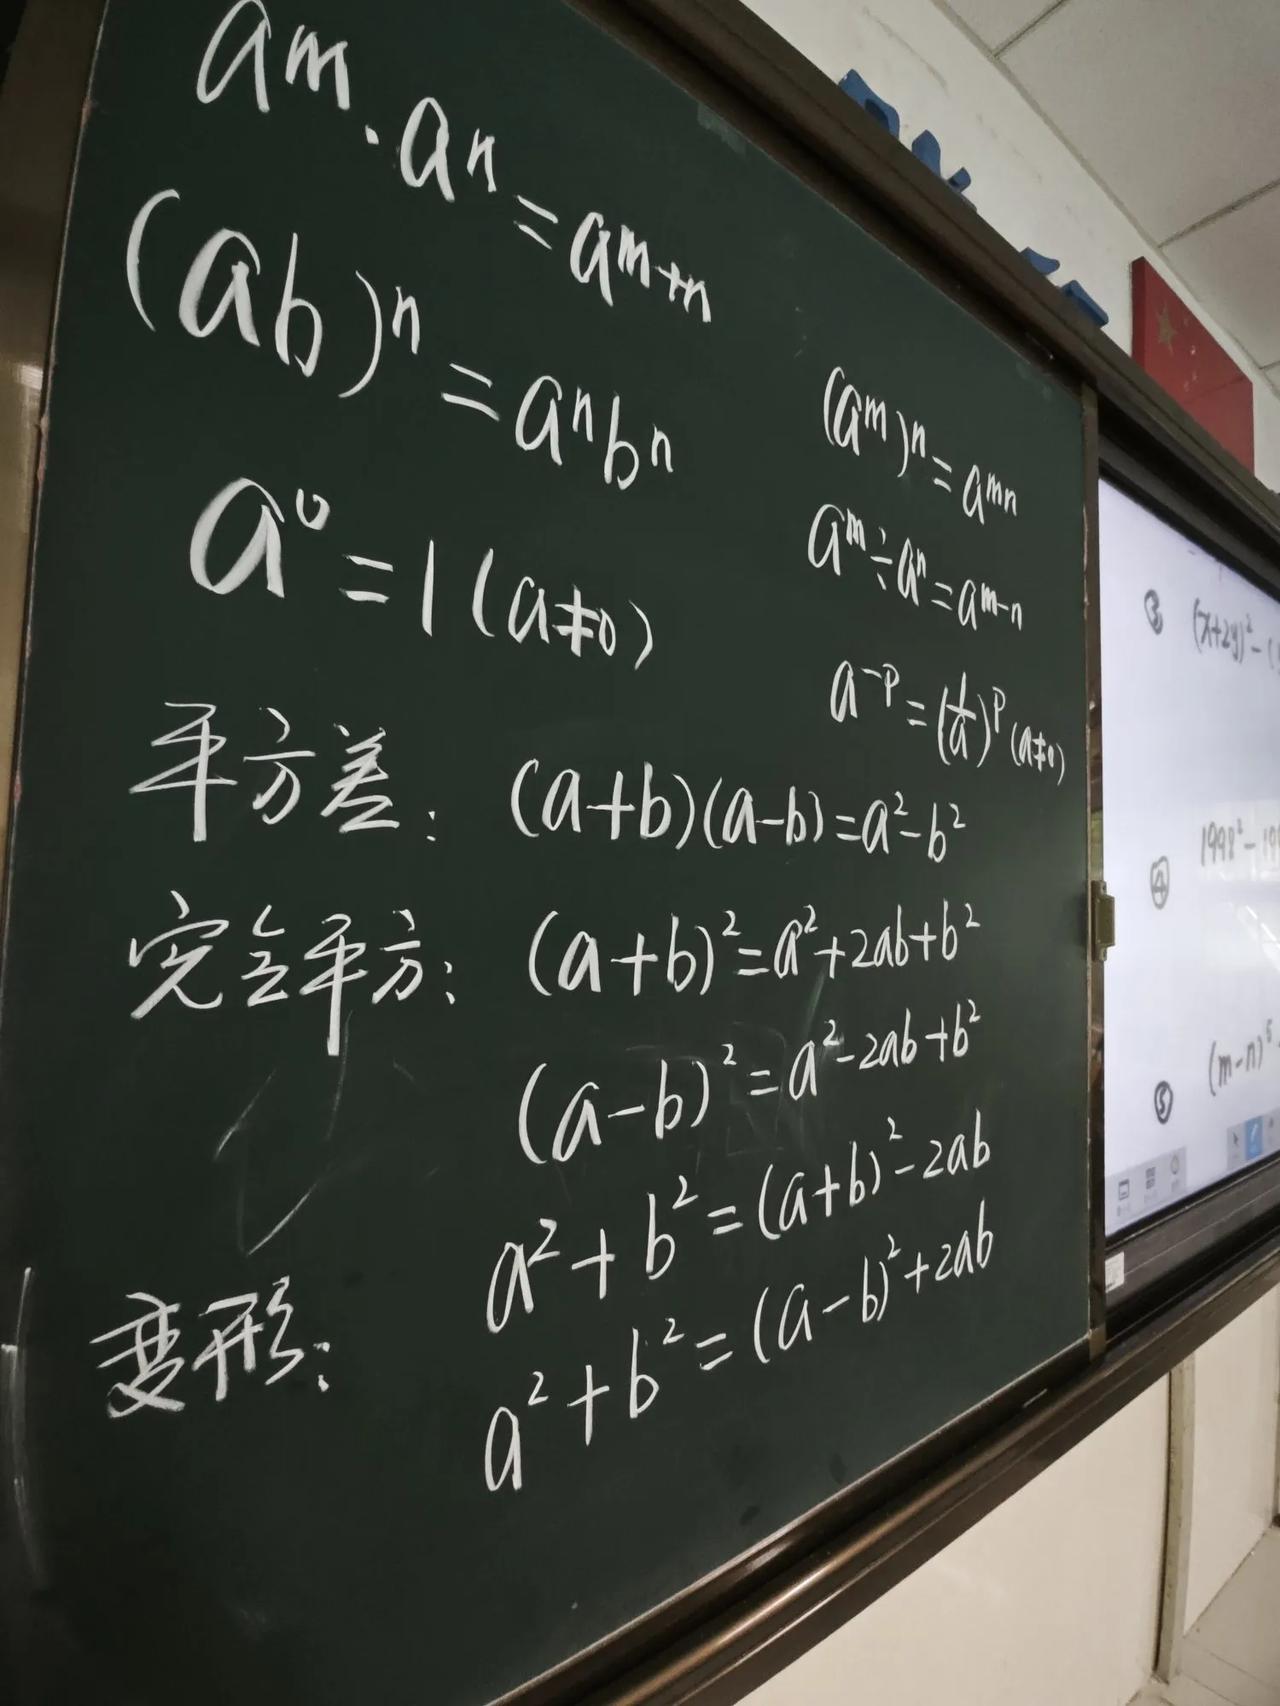 aᵐ·aⁿ=aᵐ⁺ⁿ
(ab)ⁿ=aⁿbⁿ
(aᵐ)ⁿ=aᵐⁿ
a⁰=1(a≠0)
aᵐ÷aⁿ=aᵐ⁻ⁿ
a⁻ᵖ=(1/a)ᵖ(a≠0)
平方差:(a+b)(a-b)=a²-b²
完全平方:(a+b)²=a²+2ab+b²
(a-b)²=a²-2ab+b²
变形:a²+b²=(a+b)²-2ab
a²+b²=(a-b)²+2ab
③ (x+2y)²-(
④ 1998²-19
⑤ (m-n)⁵